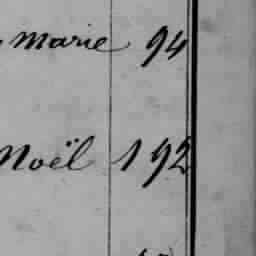 Marie 94
Noël 192